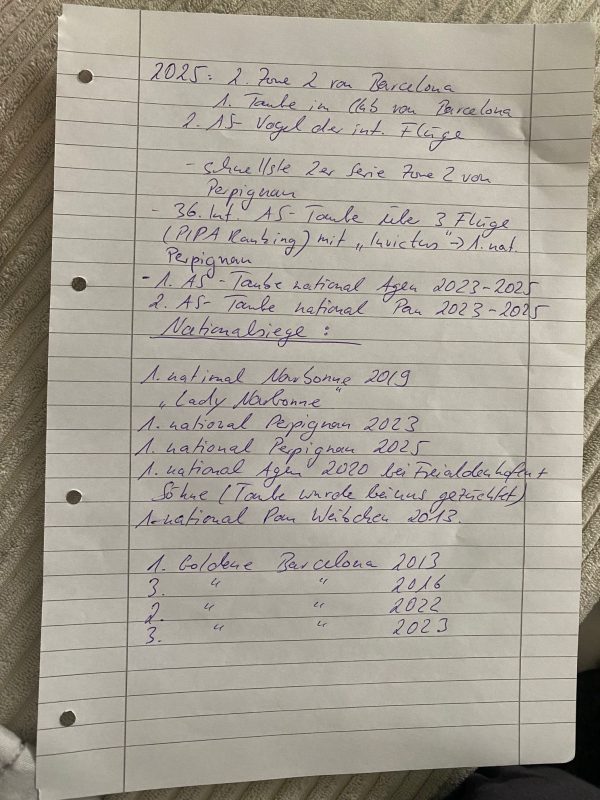 2025: 2. Zone 2 von Barcelona
1. Taube im Club von Barcelona
2. AS-Vogel der int. Flüge
- schnellste 2er Serie Zone 2 von
Perpignan
- 36. Int. AS-Taube über 3 Flüge
(PIPA Ranking) mit „Invictus" → 1. nat.
Perpignan
- 1. AS-Taube national Agen 2023-2025
2. AS-Taube national Pau 2023-2025
Nationalsiege:
1. national Narbonne 2019
„Lady Narbonne"
1. national Perpignan 2023
1. national Perpignan 2025
1. national Agen 2020 bei Freialdenhofen +
Söhne (Taube wurde bei uns gezüchtet)
1. national Pau Weibchen 2013.
1. Goldene Barcelona 2013
3. " " 2016
2. " " 2022
3. " " 2023